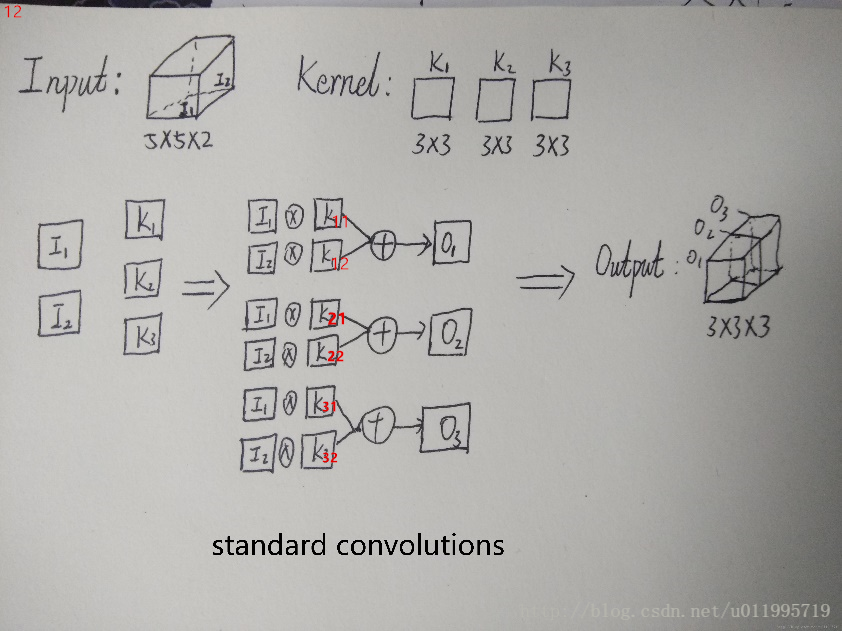 12
Input: I₁ I₂
5X5X2
Kernel: K₁ K₂ K₃
3X3 3X3 3X3
I₁ K₁
I₂ K₂
K₃
⇒
I₁ ⊗ K₁₁
I₂ ⊗ K₁₂ ⊕ → O₁
I₁ ⊗ K₂₁
I₂ ⊗ K₂₂ ⊕ → O₂
I₁ ⊗ K₃₁
I₂ ⊗ K₃₂ ⊕ → O₃
⇒
Output: O₁ O₂ O₃
3X3X3
standard convolutions
http://blog.csdn.net/u011995719